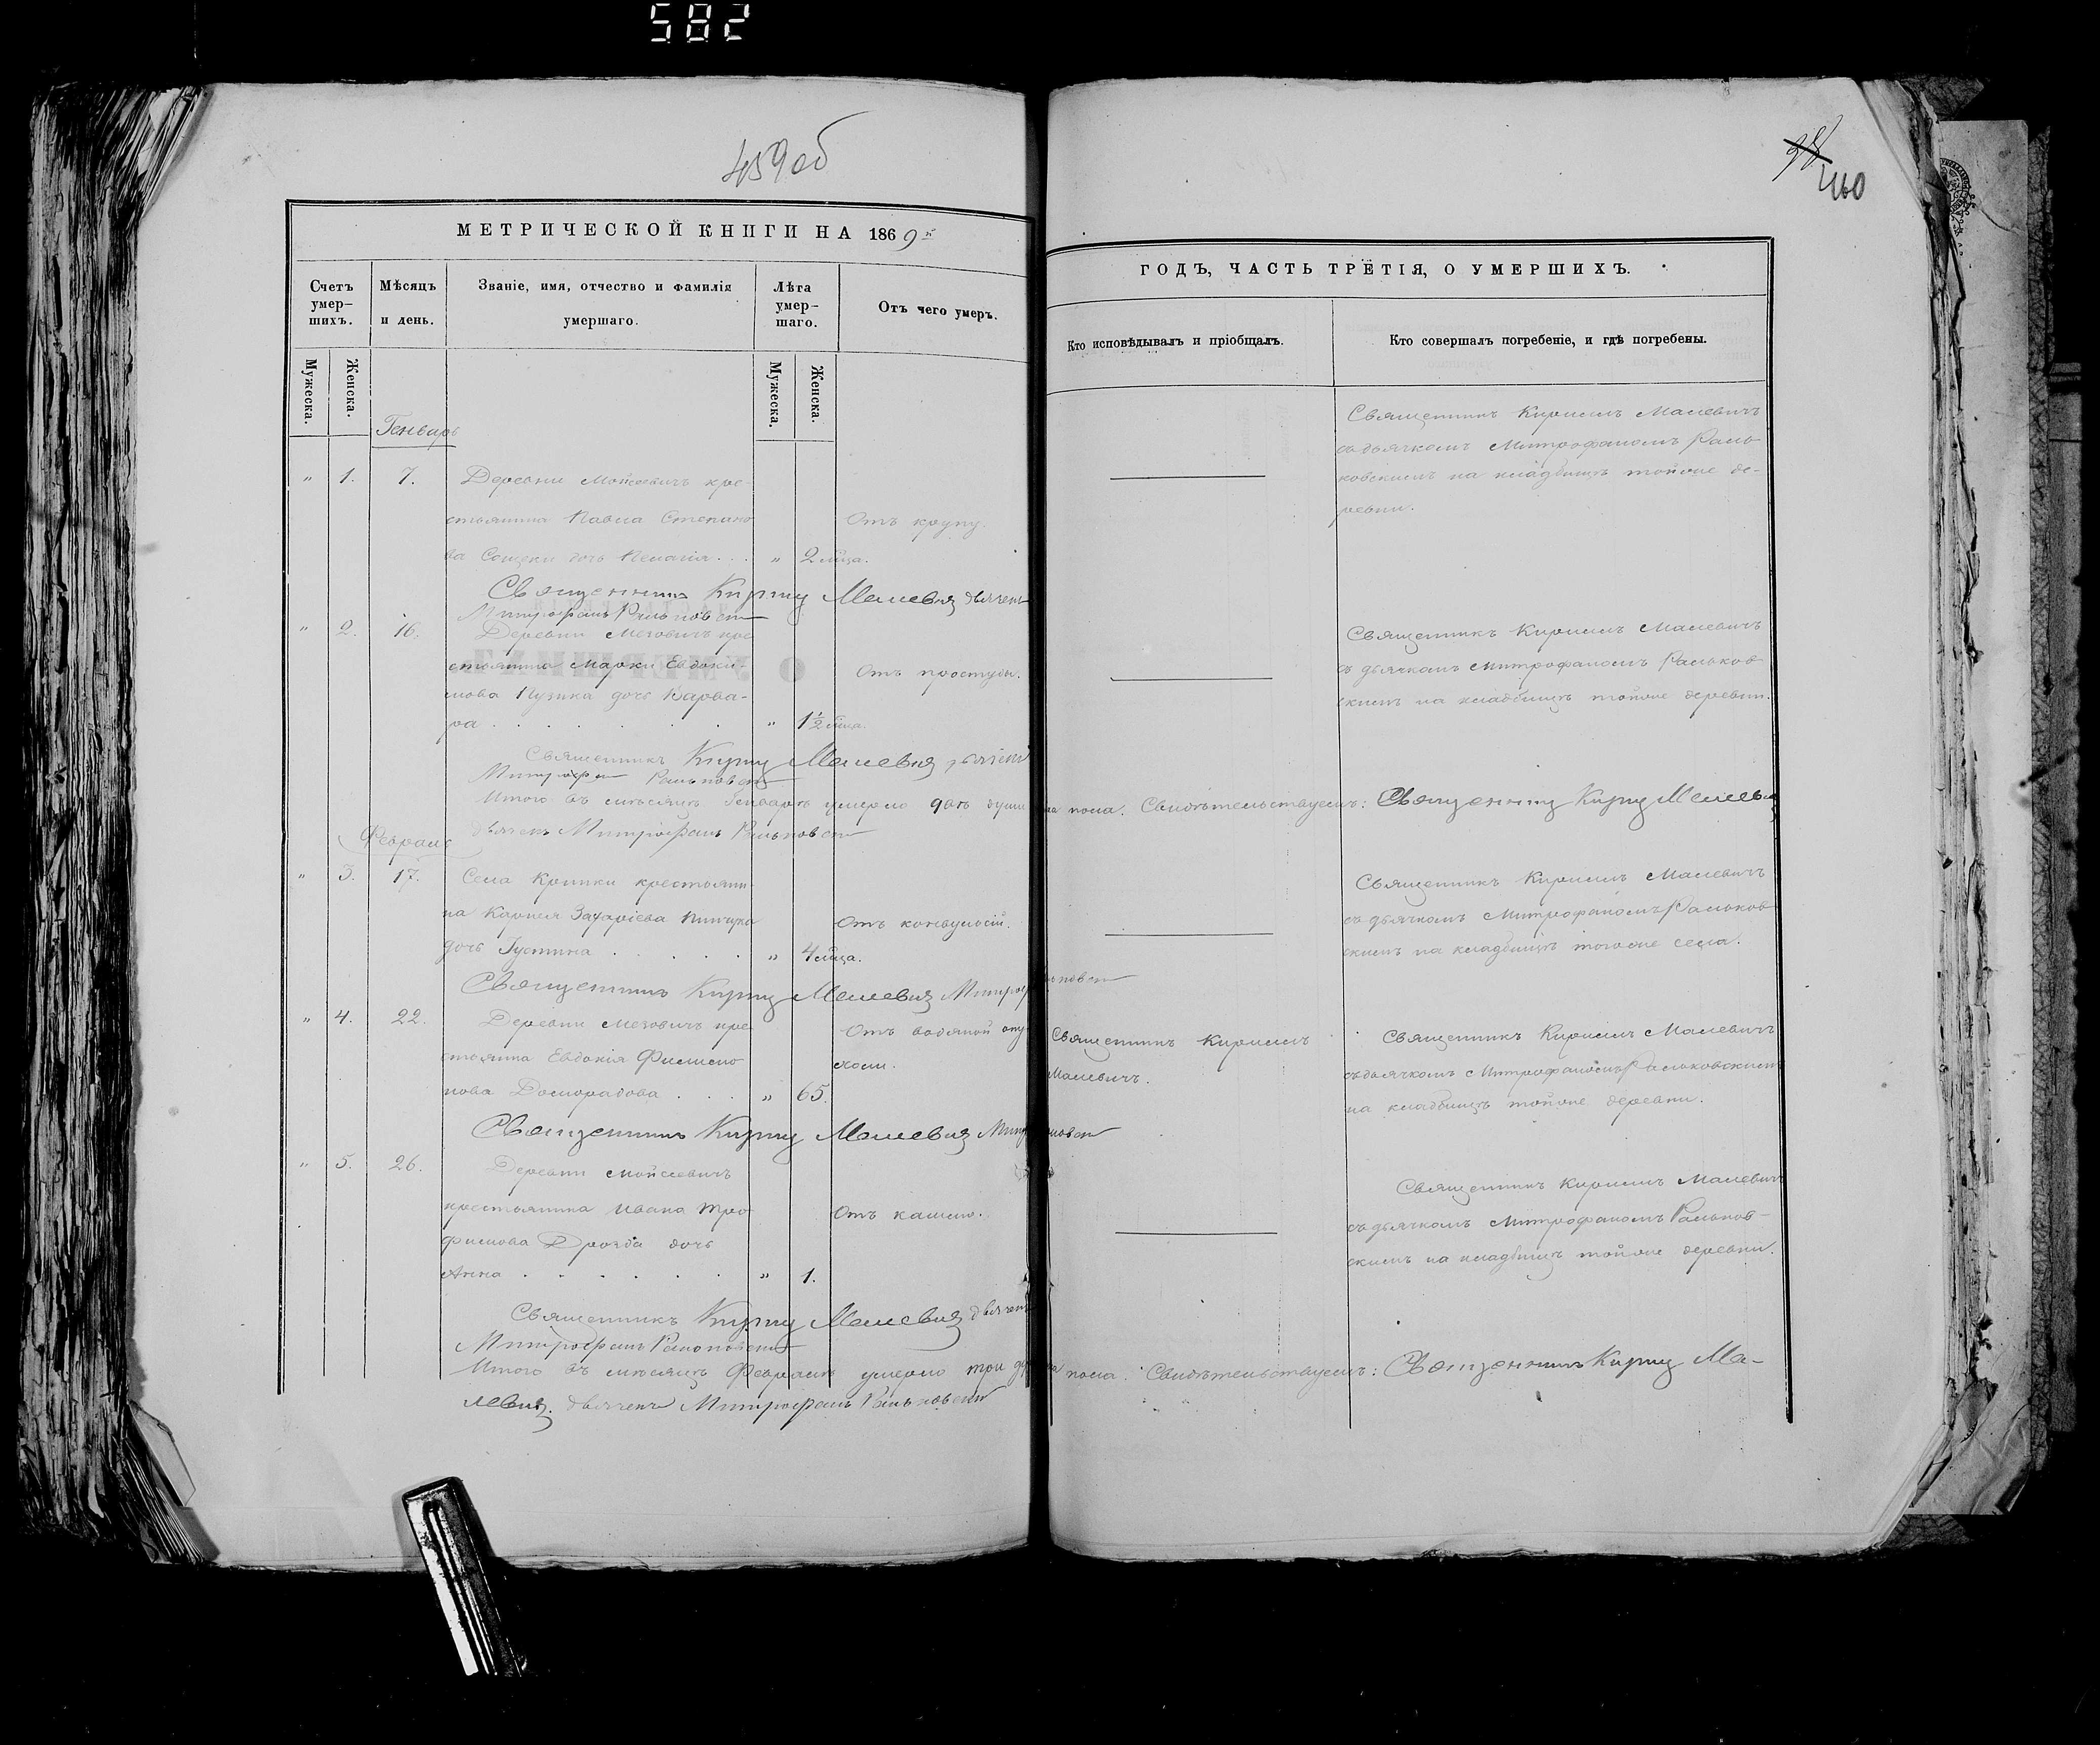 582
459об
98
460
МЕТРИЧЕСКОЙ КНИГИ НА 1869й
ГОДЪ, ЧАСТЬ ТРЕТІЯ, О УМЕРШИХЪ.
Счетъ умер-
шихъ.
Мѣсяцъ
и день.
Званіе, имя, отчество и фамилія
умершаго.
Лѣта
умер-
шаго.
Отъ чего умеръ.
Кто исповѣдывалъ и пріобщалъ.
Кто совершалъ погребеніе, и гдѣ погребены.
Мужеска.
Женска.
Мужеска.
Женска.
Генварь
„ 1. 7. Деревни Мойсеевичъ кре-
стьянина Павла Степано
ва дочь Пелагія . . . „ 2 м̃ца.
Отъ крупу.
Священникъ Кириллъ Малевичъ
съ дьячкомъ Митрофаномъ Раль-
ковскимъ на кладбищѣ тойже де-
ревни.
Священникъ Кириллъ Малевичъ дьячекъ
Митрофанъ Ральковскій
„ 2. 16. Деревни Мезовичъ кре
стьянина Марки Евдоки-
мова Пузика дочь Варва-
ра . . . . . . „ 1½ м̃ца.
Отъ простуды.
Священникъ Кириллъ Малевичъ
съ дьячкомъ Митрофаномъ Ральков-
скимъ на кладбищѣ тойже деревни.
Священникъ Кириллъ Малевичъ дьячекъ
Митрофанъ Ральковскій
Итого въ мѣсяцѣ Генварѣ умерло двѣ души пола. Свидѣтельствуемъ: Священникъ Кириллъ Малевичъ
дьячекъ Митрофанъ Ральковскій
Февраль
„ 3. 17. Села Крышки крестьяни-
на Захаріева Пинчука
дочь Іустина . . . . . „ 4 м̃ца.
Отъ конвульсій.
Священникъ Кириллъ Малевичъ
съ дьячкомъ Митрофаномъ Ральков-
скимъ на кладбищѣ тогоже села.
Священникъ Кириллъ Малевичъ
„ 4. 22. Деревни Мезовичъ кре
стьянка Евдокія Филимо
нова Доморадова . . . „ 65.
Отъ водяной опу-
холи.
Священникъ Кириллъ
Малевичъ.
Священникъ Кириллъ Малевичъ
съ дьячкомъ Митрофаномъ Ральковскимъ
на кладбищѣ тойже деревни.
Священникъ Кириллъ Малевичъ
„ 5. 26. Деревни Мойсеевичъ
крестьянина Ивана Тро
фимова Дрозда дочь
Анна . . . . . . „ 1.
Отъ кашлю.
Священникъ Кириллъ Малевичъ
съ дьячкомъ Митрофаномъ Ральков-
скимъ на кладбищѣ тойже деревни.
Священникъ Кириллъ Малевичъ дьячекъ
Митрофанъ Ральковскій
Итого въ мѣсяцѣ Февралѣ умерло три пола. Свидѣтельствуемъ: Священникъ Кириллъ Ма-
левичъ. дьячекъ Митрофанъ Ральковскій